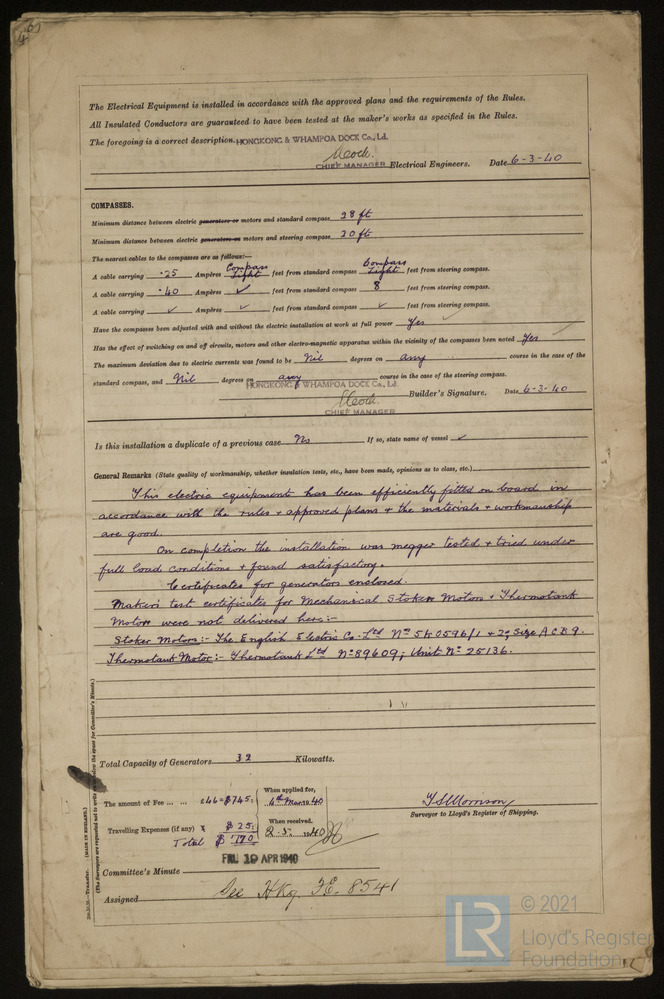 The Electrical Equipment is installed in accordance with the approved plans and the requirements of the Rules.
All Insulated Conductors are guaranteed to have been tested at the maker's works as specified in the Rules.
The foregoing is a correct description. HONGKONG & WHAMPOA DOCK Co., Ld.
CHIEF MANAGER Electrical Engineers. Date 6-3-40
COMPASSES.
Minimum distance between electric generators or motors and standard compass 28 ft
Minimum distance between electric generators or motors and steering compass 20 ft
The nearest cables to the compasses are as follows:—
A cable carrying .25 Ampères Compass Light feet from standard compass Compass Light feet from steering compass.
A cable carrying .40 Ampères ✓ feet from standard compass 8 feet from steering compass.
A cable carrying ✓ Ampères ✓ feet from standard compass ✓ feet from steering compass.
Have the compasses been adjusted with and without the electric installation at work at full power Yes
Has the effect of switching on and off circuits, motors and other electro-magnetic apparatus within the vicinity of the compasses been noted Yes
The maximum deviation due to electric currents was found to be Nil degrees on any course in the case of the
standard compass, and Nil degrees on any course in the case of the steering compass.
HONGKONG & WHAMPOA DOCK Co., Ld.
CHIEF MANAGER Builder's Signature. Date 6-3-40
Is this installation a duplicate of a previous case No If so, state name of vessel ✓
General Remarks (State quality of workmanship, whether insulation tests, etc., have been made, opinions as to class, etc.)
This electric equipment has been efficiently fitted on board in
accordance with the rules + approved plans + the materials + workmanship
are good.
On completion the installation was megger tested + tried under
full load conditions + found satisfactory.
Certificates for generators enclosed.
Makers test certificates for Mechanical Stoker Motors + Thermotank
Motor were not delivered here:-
Stoker Motors:- The English Electric Co. Ltd No 5K0596/1 + 2; Size ACB9.
Thermotank Motor:- Thermotank Ltd No 89609; Unit No 25136.
Total Capacity of Generators 32 Kilowatts.
The amount of Fee ... ... £46=$745: When applied for, 6th Mar 1940
Travelling Expenses (if any) $ 25: When received, 2.5. 1940
Total $ 770
Surveyor to Lloyd's Register of Shipping.
FRI. 19 APR 1940
Committee's Minute
Assigned See Hkg. F.E. 8541
(MADE IN ENGLAND.)
(The Surveyors are requested not to write on or below the space for Committee's Minute.)
LR
© 2021
Lloyd's Register
Foundation